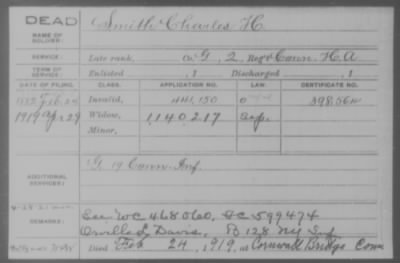 DEAD
NAME OF SOLDIER:
Smith Charles H.
SERVICE:
Late rank, Co G, 2 Reg't Conn. H.A.
TERM OF SERVICE:
Enlisted , 1 Discharged , 1
DATE OF FILING. CLASS. APPLICATION NO. LAW. CERTIFICATE NO.
Feb. Invalid, 441,150
1919 Apr 29 Widow, 1,140,217
Minor,
ADDITIONAL SERVICES:
G. 19 Conn. Inf.
REMARKS:
See WC 468060, 599474
Davis, B 128 NY Inf
Died Feb 24, 1919, at Cornwall Bridge Conn